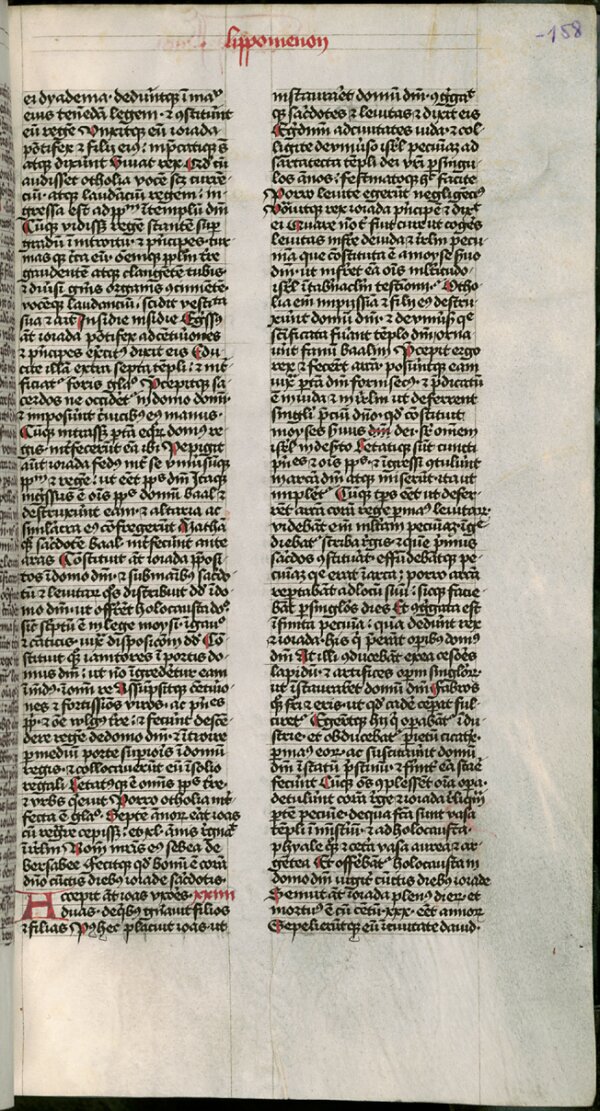 lippomenon
158
ei dyadema · deduntque i manu
eius tenendam legem · et constituunt
eum regem Unxitque eum ioiada
pontifex et filii eius · inprecatique sunt
atque dixerunt Vivat rex Quod cum
audisset otholia vocem scilicet curren
cium · atque laudancium regem · in
gressa est ad populum in templum domini
Cumque vidisset regem stantem super
gradum in introitu et principes · tur
mas que circa eum · omnemque populum terre
gaudentem atque clangentem tubis ·
et diversi generis organis concinnentem
vocemque laudancium · scidit vestimenta
sua et ait Insidie insidie Egressus
autem ioiada pontifex ad centuriones
et principes exercitus dixit eis Edu
cite illam extra septa templi · et inter
ficiatur foris gladio Precepitque sa
cerdos ne occideretur in domo domini ·
et inposuerunt cervicibus eius manus ·
Cumque intrasset portam equorum domus re
gis · interfecerunt eam ibi Pepigit
autem ioiada fedus inter se universumque
populum et regem · ut esset populus domini Itaque
ingressus est omnis populus domum baal et
destruxerunt eam · et altaria ac
simulacra eius confregerunt Mathan
quoque sacerdotem baal interfecerunt ante
aras Constituit autem ioiada preposi
tos in domo domini · et sub manibus sacerdo
tum et levitarum quos distribuit david in do
mo domini ut offerrent holocausta domino
sicut scriptum est in lege moysi · in gaudio
et canticis · iuxta disposicionem david Con
stituit quoque ianitores in portis do
mus domini · ut non ingrederetur eam
inmundus in omni re Assumpsitque centurio
nes et fortissimos viros · ac principes
populi · et omne wlgus terre · et fecerunt descen
dere regem de domo domini · et introire
per medium porte superioris in domum
regis · et collocaverunt eum in solio
regali Letatusque est omnis populus terre ·
et urbs quievit Porro otholia inter
fecta est gladio · Septem annorum erat ioas
cum regnare cepisset · et xl · annis regnavit
in ierusalem Nomen matris eius sebea de
bersabee fecitque quod bonum est coram
domino cunctis diebus ioiade sacerdotis ·
Accepit autem ioas uxores · xxiiii
duas · de quibus genuit filios
et filias Post hec placuit ioas ut
instauraret domum domini · congregavit
que sacerdotes et levitas et dixit eis
Egredimini ad civitates iuda · et col
ligite de universo israel pecuniam ad
sartatecta templi dei vestri per singu
los annos · festinatoque hoc facite
Porro levite egerunt negligencius
Vocavitque rex ioiada principem et dixit
ei Quare non tibi fuit cure ut cogeres
levitas inferre de iuda et ierusalem pecu
niam que constituta est a moyse servo
domini · ut inferret eam omnis multitudo
israel in tabernaculum testimonii · Otho
lia enim impiissima et filii eius destru
xerunt domum domini · et de universis que
sanctificata fuerant templo domini orna
verunt fanum baalim Precepit ergo
rex et fecerunt arcam posueruntque eam
iuxta portam domini forinsecus · et predicatum
est in iuda et ierusalem ut deferrent
singuli precium domino · quod constituit
moyses servus domini dei · super omnem
israel in deserto Letatique sunt cuncti
principes et omnis populus · et ingressi contulerunt
in arcam domini atque miserunt · ita ut
impleretur Cumque tempus esset ut defer
rent arcam coram rege per manus levitarum
videbant enim multam pecuniam · ingre
diebatur scriba regis · et quem primus
sacerdos constituerat · effundebatque pe
cuniam que erat in arca · porro arcam
reportabant ad locum suum · sicque facie
bant per singulos dies Et congregata est
infinita pecunia · quam dederunt rex
et ioiada · his qui preerant operibus domus
domini At illi conducebant ex ea cesores
lapidum · et artifices operum singulorum
ut instaurarent domum domini Fabros
quoque ferri et eris · ut quod cadere ceperat ful
ciretur Egeruntque hii qui operabantur indu
strie · et obducebatur parietum cicatrix ·
per manus eorum · ac suscitaverunt domum
domini in statum pristinum · et firmiter eam stare
fecerunt Cumque conplessent omnia opera ·
detulerunt coram rege et ioiada reliquam
partem pecunie · de qua facta sunt vasa
templi in ministerium · et ad holocausta ·
phyale quoque et cetera vasa aurea et ar
gentea Et offerebantur holocausta in
domo domini iugiter cunctis diebus ioiade
Senuit autem ioiada plenus dierum · et
mortuus est cum centum · xxx · esset annorum
Sepelieruntque eum in civitate david ·